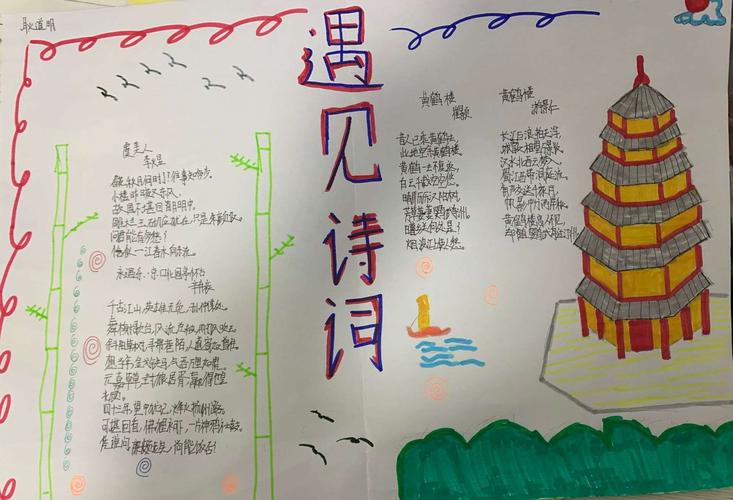 耿道明
遇见诗词
虞美人
李煜
春花秋月何时了?往事知多少。
小楼昨夜又东风,
故国不堪回首月明中。
雕栏玉砌应犹在,只是朱颜改。
问君能有几多愁?
恰似一江春水向东流。
永遇乐·京口北固亭怀古
辛弃疾
千古江山,英雄无觅,孙仲谋处。
舞榭歌台,风流总被,雨打风吹去。
斜阳草树,寻常巷陌,人道寄奴曾住。
想当年,金戈铁马,气吞万里如虎。
元嘉草草,封狼居胥,赢得仓皇
北顾。
四十三年,望中犹记,烽火扬州路。
可堪回首,佛狸祠下,一片神鸦社鼓。
凭谁问:廉颇老矣,尚能饭否?
黄鹤楼
崔颢
昔人已乘黄鹤去,
此地空余黄鹤楼。
黄鹤一去不复返,
白云千载空悠悠。
晴川历历汉阳树,
芳草萋萋鹦鹉洲。
日暮乡关何处是?
烟波江上使人愁。
黄鹤楼
游景仁
长江巨浪拍天浮,
城郭相望万景收。
汉水北吞云梦入,
蜀江西带洞庭流。
角声交送千家月,
帆影中分两岸秋。
黄鹤楼高人不见,
却随鹦鹉过汀洲。